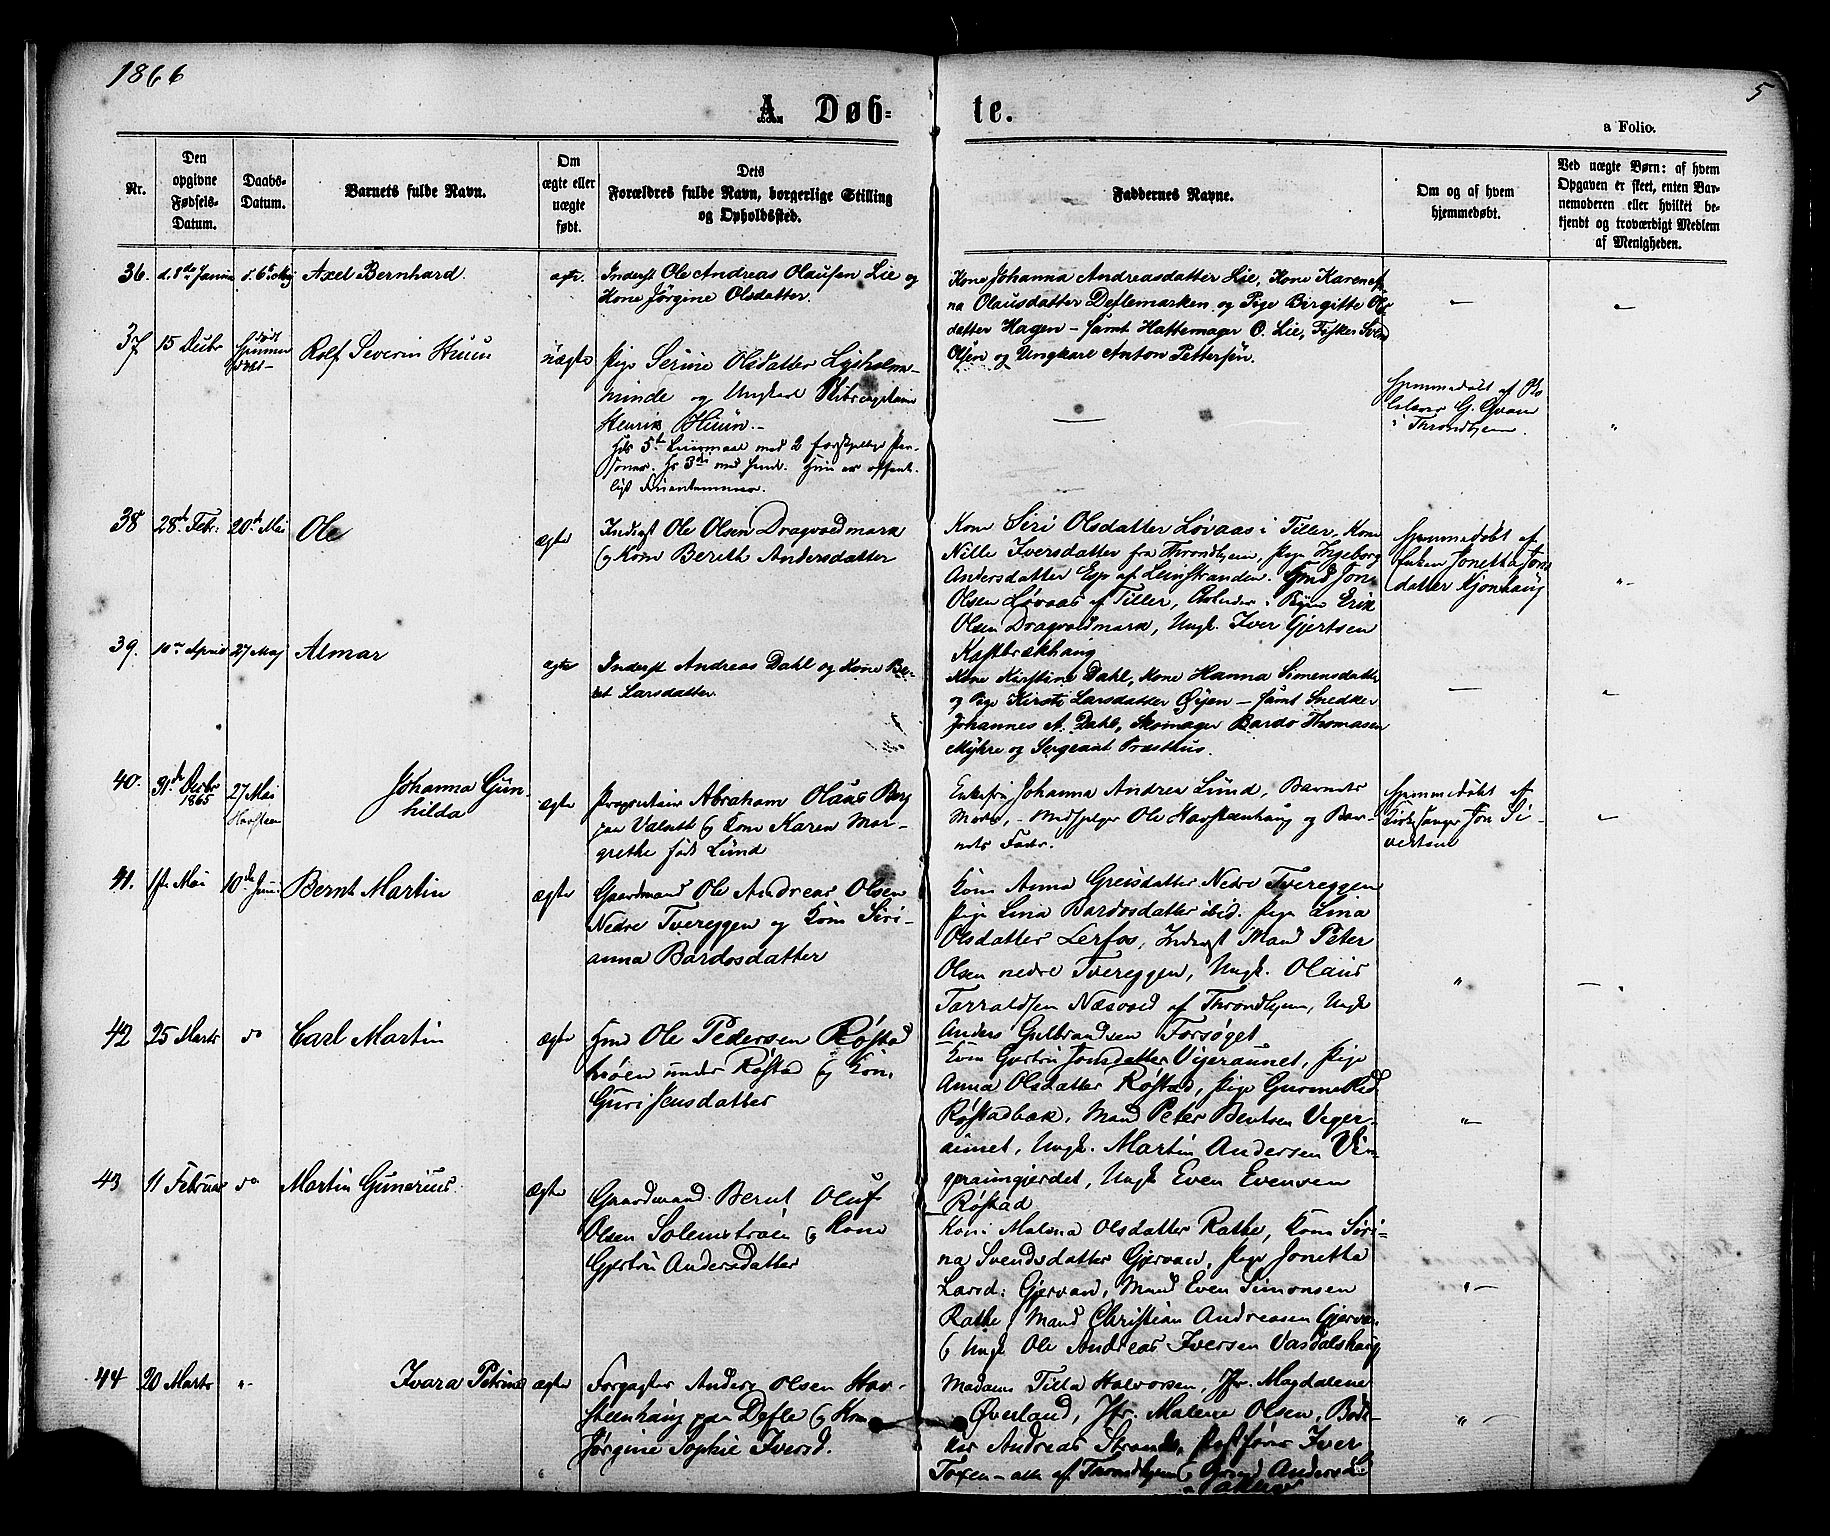 1866
5
A. Døb-
te.
a Folio.
Nr.
Den opgivne Fødsels-Datum.
Daabs-Datum.
Barnets fulde Navn.
Om ægte eller uægte født.
Dets Forældres fulde Navn, borgerlige Stilling og Opholdssted.
Faddernes Navne.
Om og af hvem hjemmedøbt.
Ved uægte Børn: af hvem Opgaven er skeet, enten Barnemoderen eller hvilket bekjendt og troværdigt Medlem af Menigheden.
36.
Axel Bernhard.
ægte.
Inderst Ole Andreas Olausen Lie og
Kone Jørgine Olsdatter.
Kone Johanna Andreasdatter Lie, Kone
na Olausdatter Deflemarken og Pige Birgitte Ols
datter Hagen – samt Hattemager O. Lie, Fisker
Olsen og Ungkarl Anton Pettersen.
37
15 Decbr
Rolf Severin Huun
uægte
Pige Serine Olsdatter Lysholm-
minde og Ungkarl
Henrik Huun.-
Hjemmedøbt af
i Throndhjem.
38
28de Febr.
20de Mai
Ole
ægte
Inderst Ole Olsen Dragvoldmark
og Kone Bereth Andersdatter
Kone Siri Olsdatter Løvaas i Tiller, Kone
Nille Iversdatter fra Throndhjem, Pige Ingeborg
Andersdatter Esp af Leinstranden. Hmd Jon
Olsen Løvaas af Tiller, Erik
Olsen Dragvoldmark, Ungk. Iver Gjertsen
Kastbrækhaug
Hjemmedøbt af
Enken Jonetha Jons
datter
39.
27 Maj
Almar
ægte
Inderst Andreas Dahl og Kone Be-
ret Larsdatter
Kone Kirstine Dahl, Kone Hanna Simensdatter
og Pige Kirsti Larsdatter Øyen – samt Snedker
Johannes A. Dahl, Skomager Bardo Thomasen
Myhre og Sergeant Præsthus.
40.
31de Decbr
1865
27 Mai
Johanna Gun-
hilda
ægte
Proprietair Abraham Olaus Berg
paa Valset og Kone Karen Mar-
grethe født Lund
Enkefru Johanna Andrea Lund, Barnets
Moder, Ole Havstenhaug og Bar-
nets Fader.
Hjemmedøbt af
Kirkesanger Jon Si-
vertsen
41.
1ste Mai
10de Juni
Bernt Martin
ægte
Gaardmand Ole Andreas Olsen
Nedre Tvereggen og Kone Siri-
anna Bardosdatter
Kone Anna Greisdatter Nedre Tvereggen
Pige Lina Bardosdatter ibid. Pige Lina
Olsdatter Lerfos, Inderst Mand Peter
Olsen nedre Tvereggen, Ungk. Olaus
Tarraldsen Næsvold af Throndhjem, Ungk
Anders Gulbrandsen Forsøget
42
25 Marts
do
Carl Martin
ægte
Hmd Ole Pedersen Røstad
hrøen under Røstad og Kone
Guri Jensdatter
Kone Gurtru Jonsdatter Vigeraunet, Pige
Anna Olsdatter Røstad, Pige
Røstadbak, Mand Peter Bentsen Viger-
aunet, Ungk. Martin Andersen
Ungk Even Evensen
Røstad
43
11 Februar
do
Martin Gunerius
ægte
Gaardmand Bernt Oluf
Olsen Solemstrøen og Kone
Gjertru Andersdatter
Kone Malena Olsdatter Rathe, Kone Seri-
na Svendsdatter Gjervan, Pige Jonetta
Larsd: Gjervan, Mand Even Simonsen
Rathe, Mand Christian Andreasen Gjervan
og Ungk Ole Andreas Iversen Vasdalshaug
44
20 Marts
Ivara Petrine
ægte
Forpagter Anders Olsen Hav-
steenhaug paa Defle og Kone
Jørgine Sophie Iversd.
Madam Tilla Halvorsen, Jfr. Magdalene
Øverland, Jfr. Malene Olsen, Bød-
ker Andreas Strand, Iver
Toxen – alle af Throndhjem og Anders